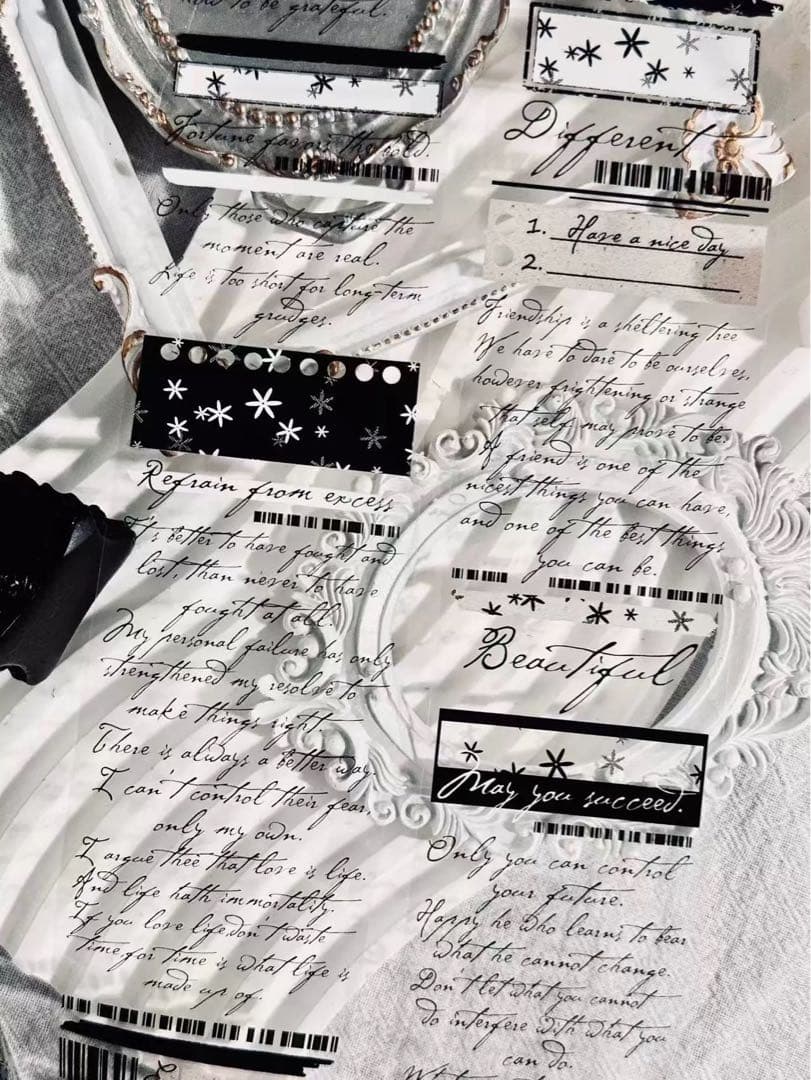 how to be grateful.
Fortune favors the bold.
Only those who capture the
moment are real.
Life is too short for long-term
grudges.
Refrain from excess
It's better to have fought and
lost, than never to have
fought at all.
My personal failure has only
strengthened my resolve to
make things right.
There is always a better way.
I can't control their fear,
only my own.
I argue thee that love is life.
And life hath immortality.
If you love life, don't waste
time, for time is what life is
made up of.
Different
1. Have a nice day
2.
Friendship is a sheltering tree
We have to dare to be ourselves,
however frightening or strange
that self may prove to be.
A friend is one of the
nicest things you can have,
and one of the best things
you can be.
Beautiful
May you succeed.
Only you can control
your future.
Happy he who learns to bear
what he cannot change.
Don't let what you cannot
do interfere with what you
can do.